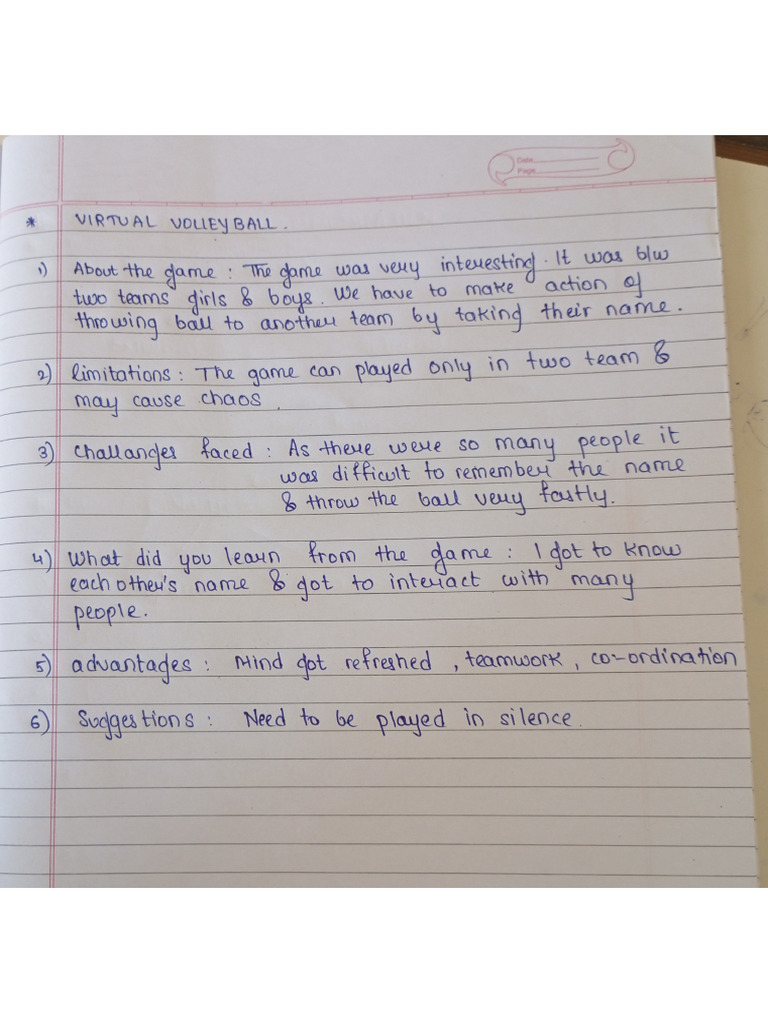 Date
Page
* VIRTUAL VOLLEYBALL.
1) About the game : The game was very interesting. It was b/w
two teams girls & boys. We have to make action of
throwing ball to another team by taking their name.
2) limitations : The game can played only in two team &
may cause chaos.
3) challanges faced : As there were so many people it
was difficult to remember the name
& throw the ball very fastly.
4) What did you learn from the game : I got to know
each other's name & got to interact with many
people.
5) advantages : Mind got refreshed , teamwork , co-ordination
6) Suggestions : Need to be played in silence.